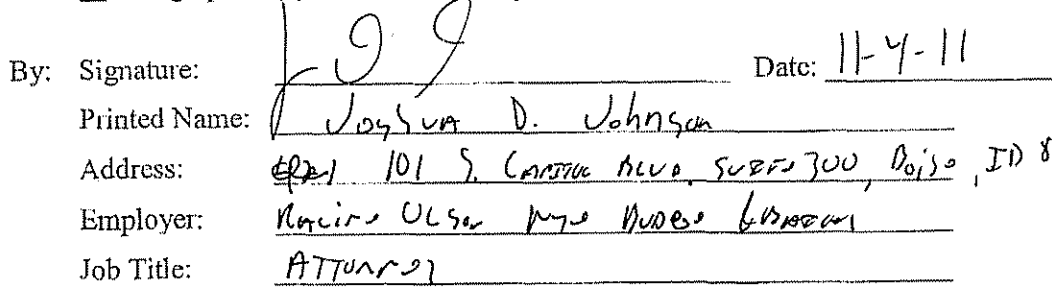 By: Signature: Date: 11-4-11
Printed Name: Joshua D. Johnson
Address: 101 S. Capitol Blvd, Suite 300, Boise, ID 8
Employer: Racine Olson Nye Budge
Job Title: Attorney